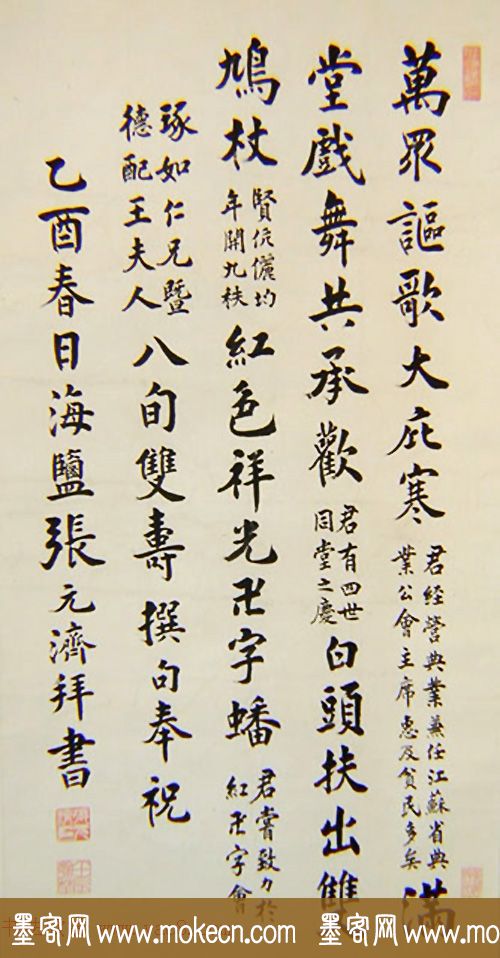 萬眾謳歌大庇寒君經營典業兼任江蘇省典業公會主席惠及貧民多矣滿
堂戲舞共承歡君有四世同堂之慶白頭扶出雙
鳩杖賢伉儷均年開九秩紅色祥光卍字蟠君嘗致力於紅卍字會
琢如仁兄暨德配王夫人八旬雙壽撰句奉祝
乙酉春日海鹽張元濟拜書
墨客网 www.mokecn.com 墨客网 www.mokecn.com